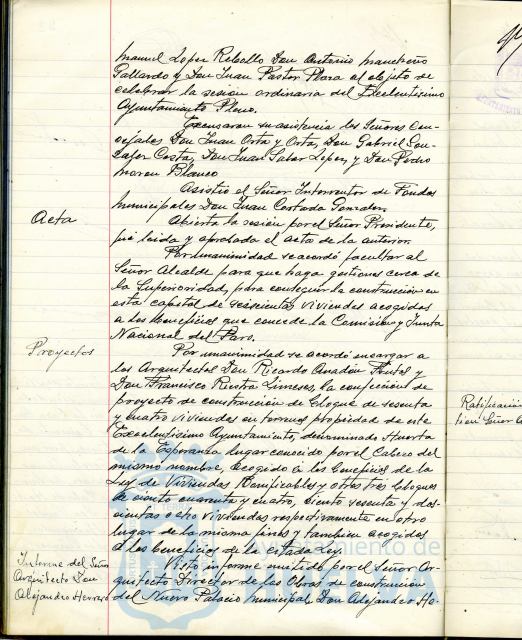 Manuel Lopez Rebollo Don Antonio Mancheño
Gallardo y Don Juan Pastor Plaza al objeto de
celebrar la sesión ordinaria del Excelentísimo
Ayuntamiento Pleno.
Excusaron su asistencia los Señores Con-
cejales Don Juan Orta y Orta, Don Gabriel Gon-
zalez Costa, Don Juan Lopez, y Don Pedro
Moron Blanco
Asistió el Señor Interventor de Fondos
Municipales Don Juan Cortada Gonzalez.
Acta
Abierta la sesión por el Señor Presidente,
fue leida y aprobada el acta de la anterior.
Por unanimidad se acordó facultar al
Señor Alcalde para que haga gestiones cerca de
la Superioridad, para conseguir la construcción en
esta capital de seiscientas viviendas acogidas
a los beneficios que concede la Comision y Junta
Nacional del Paro.
Proyectos
Por unanimidad se acordó encargar a
los Arquitectos Don Ricardo Anadón Frutos y
Don Francisco Riestra Limeses, la confección de
proyecto de construcción de bloque de sesenta
y cuatro viviendas en terrenos propiedad de este
Excelentísimo Ayuntamiento, denominado Huerta
de la Esperanza lugar conocido por el Cabezo del
mismo nombre, acogido a los beneficios de la
Ley de Viviendas Bonificables y otros tres bloques
de ciento cuarenta y cuatro, ciento sesenta y dos-
cientas ocho viviendas respectivamente en otro
lugar de la misma finca y tambien acogidos
a los beneficios de la citada Ley.
Informe del Señor
Arquitecto Don
Alejandro Herrero
Visto informe emitido por el Señor Ar-
quitecto Director de las Obras de construcción
del Nuevo Palacio Municipal Don Alejandro He-
Ratificación
Ayuntamiento de